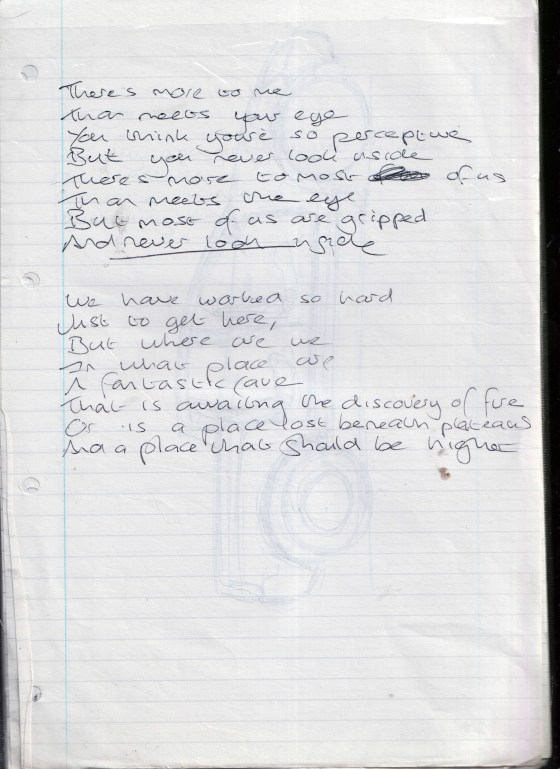 There's more to me
Than meets your eye
You think you're so perceptive
But you never look inside
There's more to most of us
Than meets the eye
But most of us are gripped
And never look inside
We have worked so hard
Just to get here,
But where are we
In what place are
A fantastic cave
That is awaiting the discovery of fire
Or is a place lost beneath plateaus
And a place that should be higher